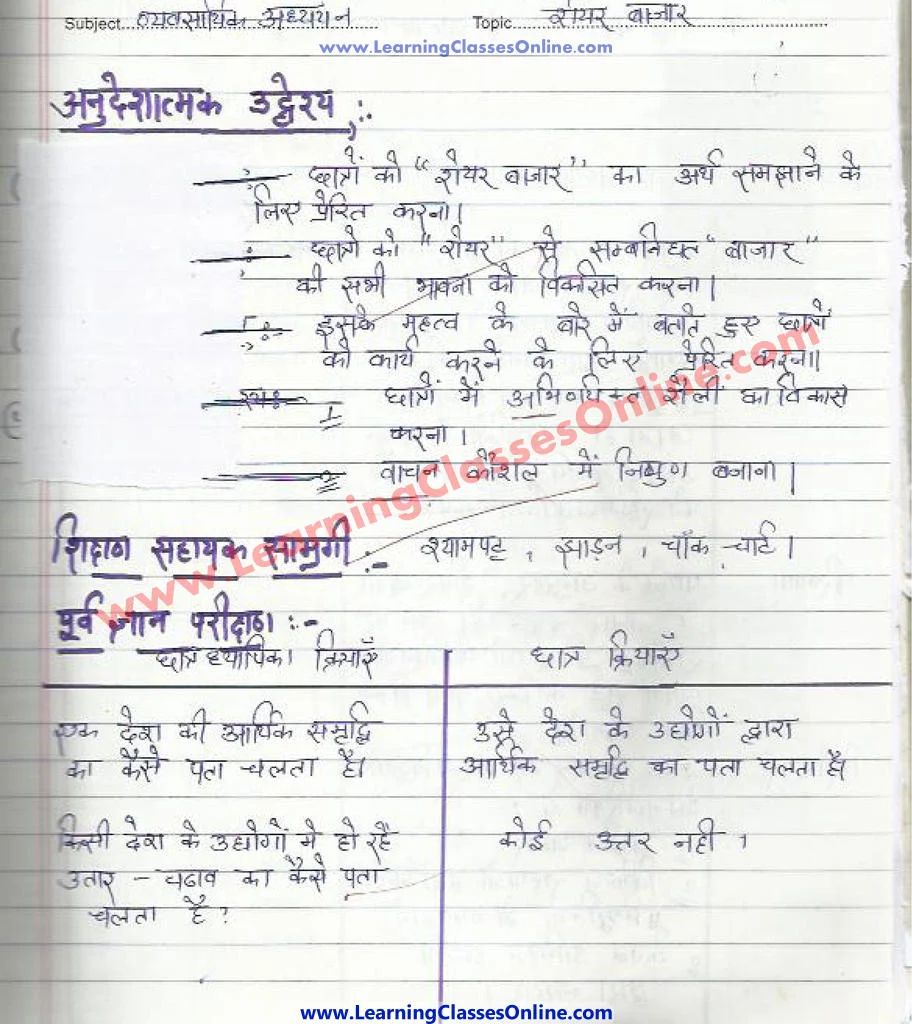 Subject व्यवसायिक अध्ययन Topic शेयर बाजार
www.LearningClassesOnline.com
अनुदेशात्मक उद्देश्य :-
छात्रों को "शेयर बाजार" का अर्थ समझाने के
लिए प्रेरित करना।
छात्रो को "शेयर" से सम्बनिधत "बाजार"
की सभी भावना को विकसित करना।
इसके महत्व के बारे में बताते हुए छात्रों
को कार्य करने के लिए प्रेरित करना।
छात्रों में अभिव्यक्ति शैली का विकास
करना।
वाचन कौशल में निपुण बनाना।
शिक्षण सहायक सामग्री :- श्यामपट्ट, झाड़न, चॉक चार्ट।
www.LearningClassesOnline.com
पूर्व ज्ञान परीक्षण :-
छात्र ध्यापिका क्रियाएँ छात्र क्रियाएँ
एक देश की आर्थिक समृद्धि उसे देश के उद्योगों द्वारा
का कैसे पता चलता है। आर्थिक समृद्धि का पता चलता है।
किसी देश के उद्योगों मे हो रहे कोई उत्तर नही।
उतार - चढाव का कैसे पता
चलता है?
www.LearningClassesOnline.com